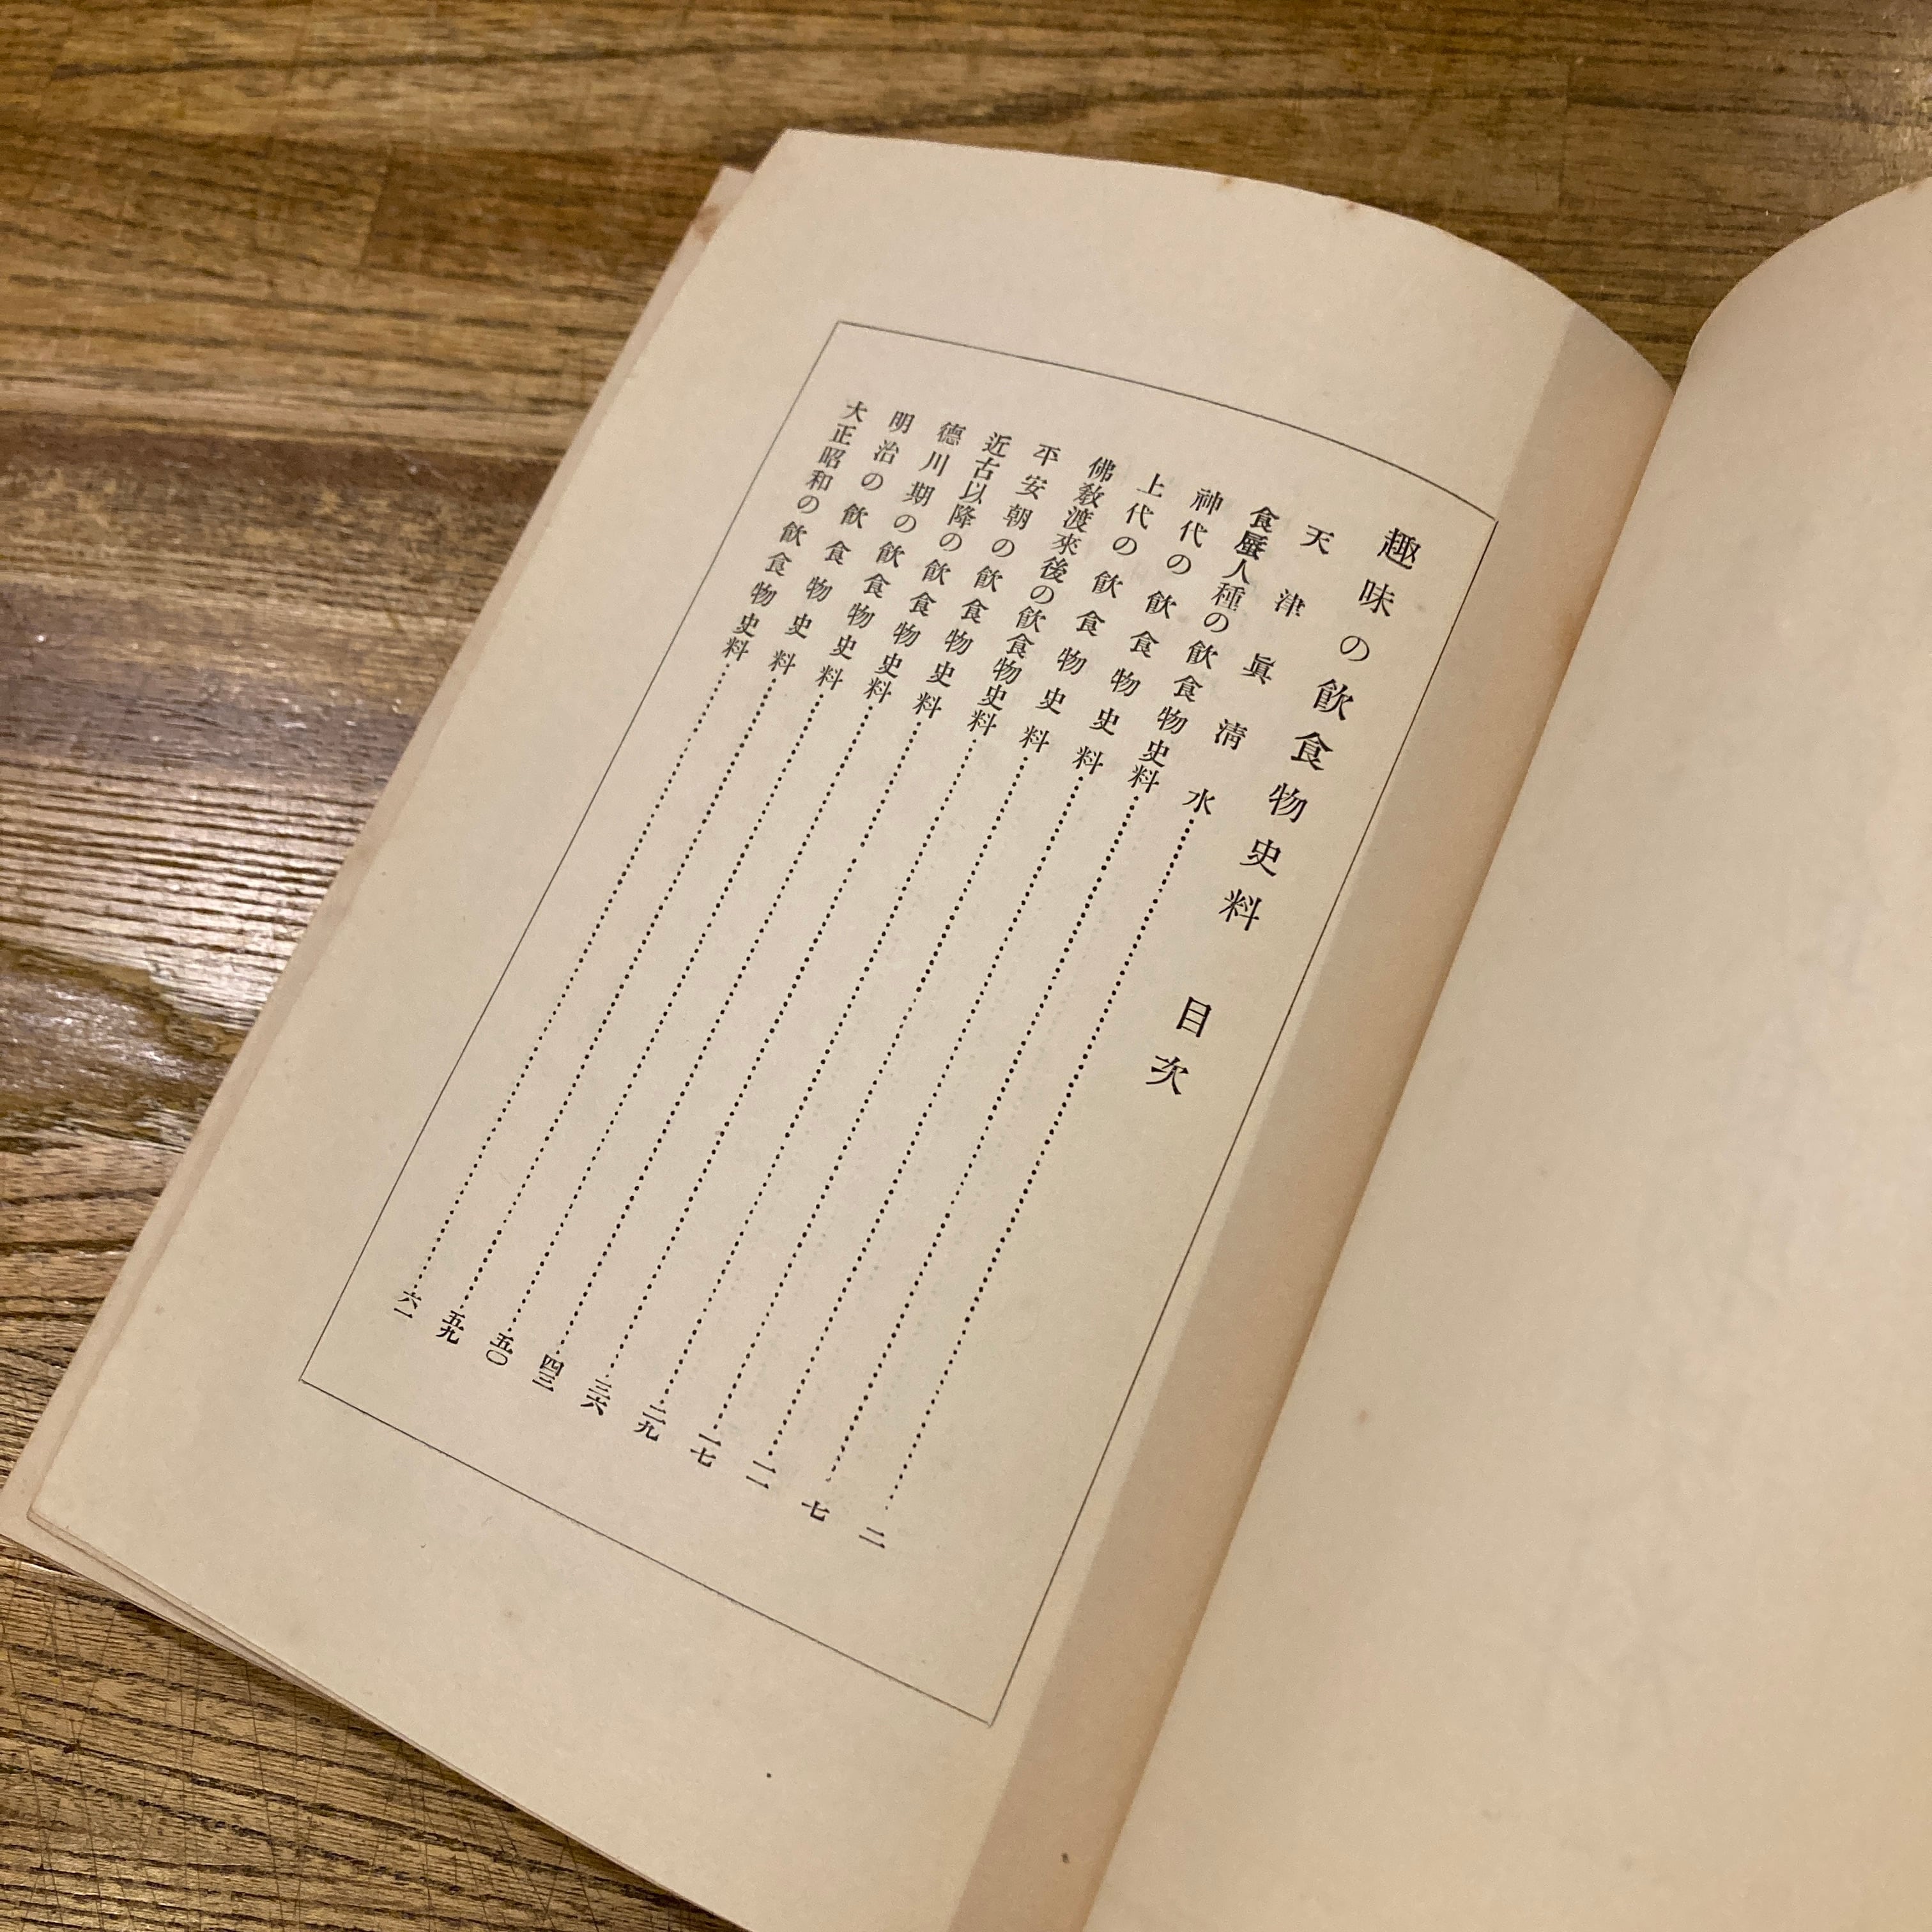 趣味の飲食物史料 目次
天津眞淸水…………二
食蜃人種の飲食物史料…………七
神代の飲食物史料…………一一
上代の飲食物史料…………一七
佛敎渡來後の飲食物史料…………二九
平安朝の飲食物史料…………三六
近古以降の飲食物史料…………四三
德川期の飲食物史料…………五〇
明治の飲食物史料…………五九
大正昭和の飲食物史料…………六一